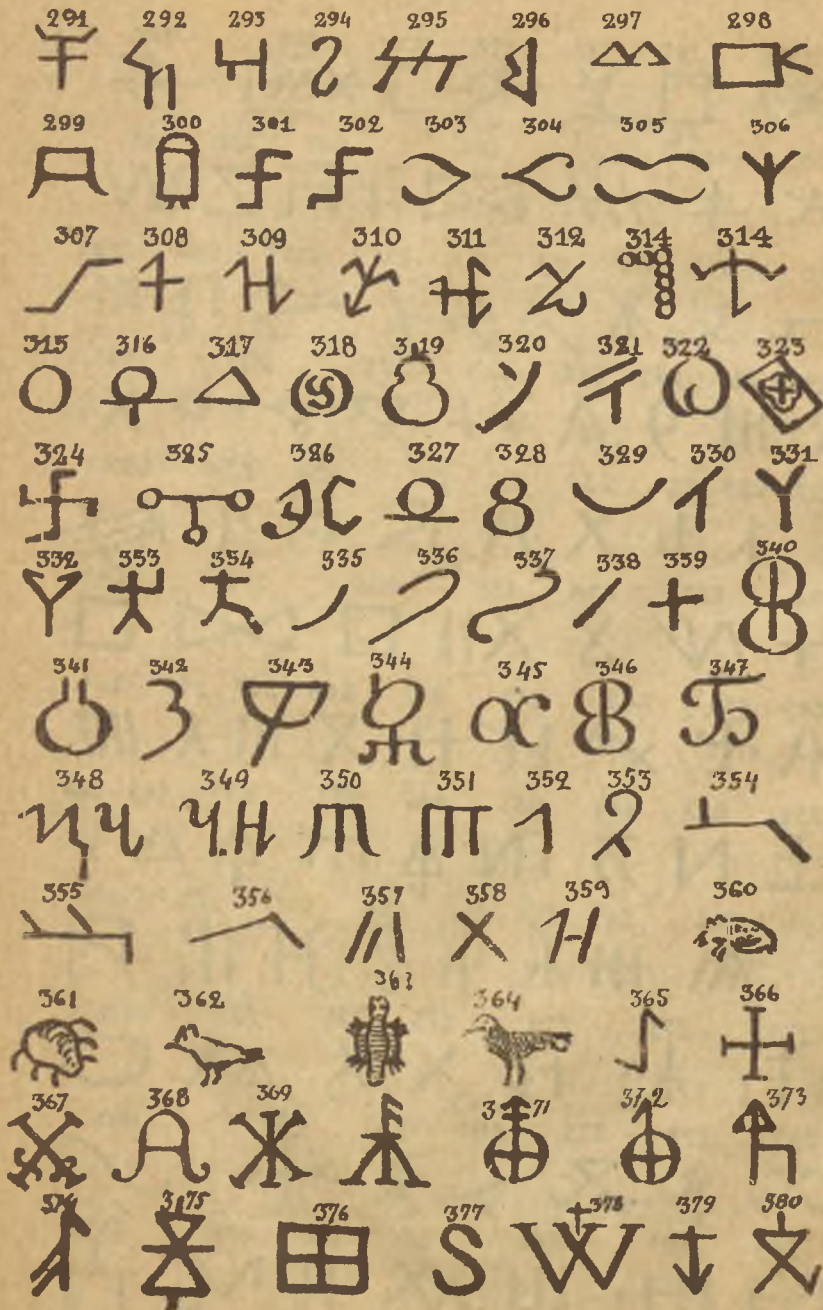 291 292 293 294 295 296 297 298
299 300 301 302 303 304 305 306
307 308 309 310 311 312 314 314
315 316 317 318 319 320 321 322 323
324 325 326 327 328 329 330 331
332 333 334 335 336 337 338 339 340
341 342 343 344 345 346 347
348 349 350 351 352 353 354
355 356 357 358 359 360
361 362 363 364 365 366
367 368 369 371 372 373
374 375 376 377 378 379 380